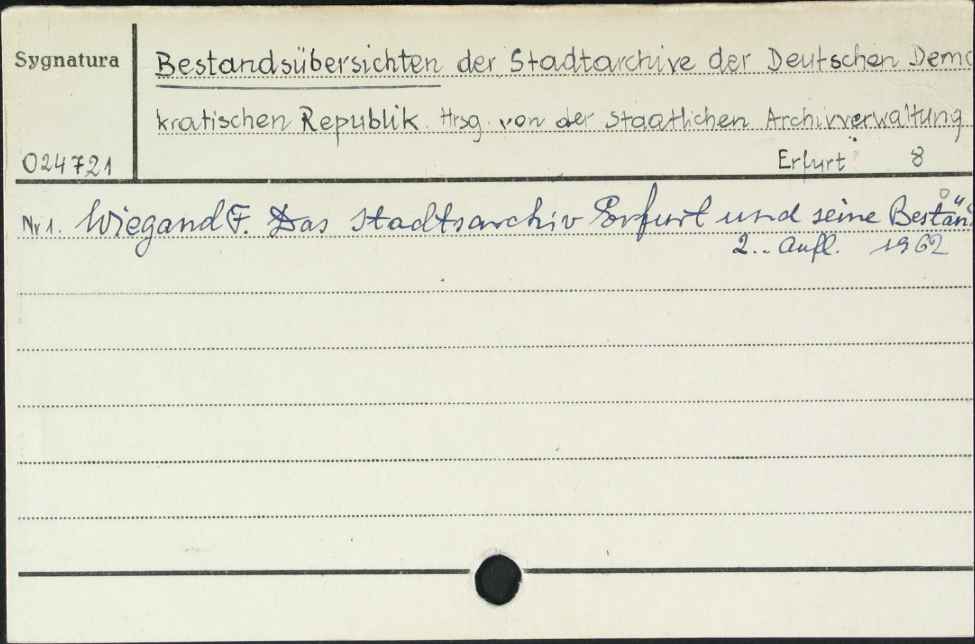 Sygnatura
Bestandsübersichten der Stadtarchive der Deutschen Demo
kratischen Republik. Hrsg. von der Staatlichen Archivverwaltung.
024721
Erfurt 8
Nr 1. Wiegand F. Das Stadtsarchiv Erfurt und seine Bestän
2.. Aufl. 1962